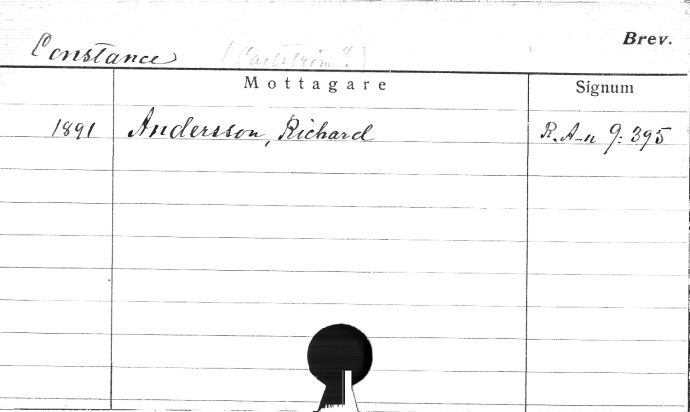 Brev.
Constance (Carlström?)
Mottagare Signum
1891 Andersson, Richard R. A-n 9: 395